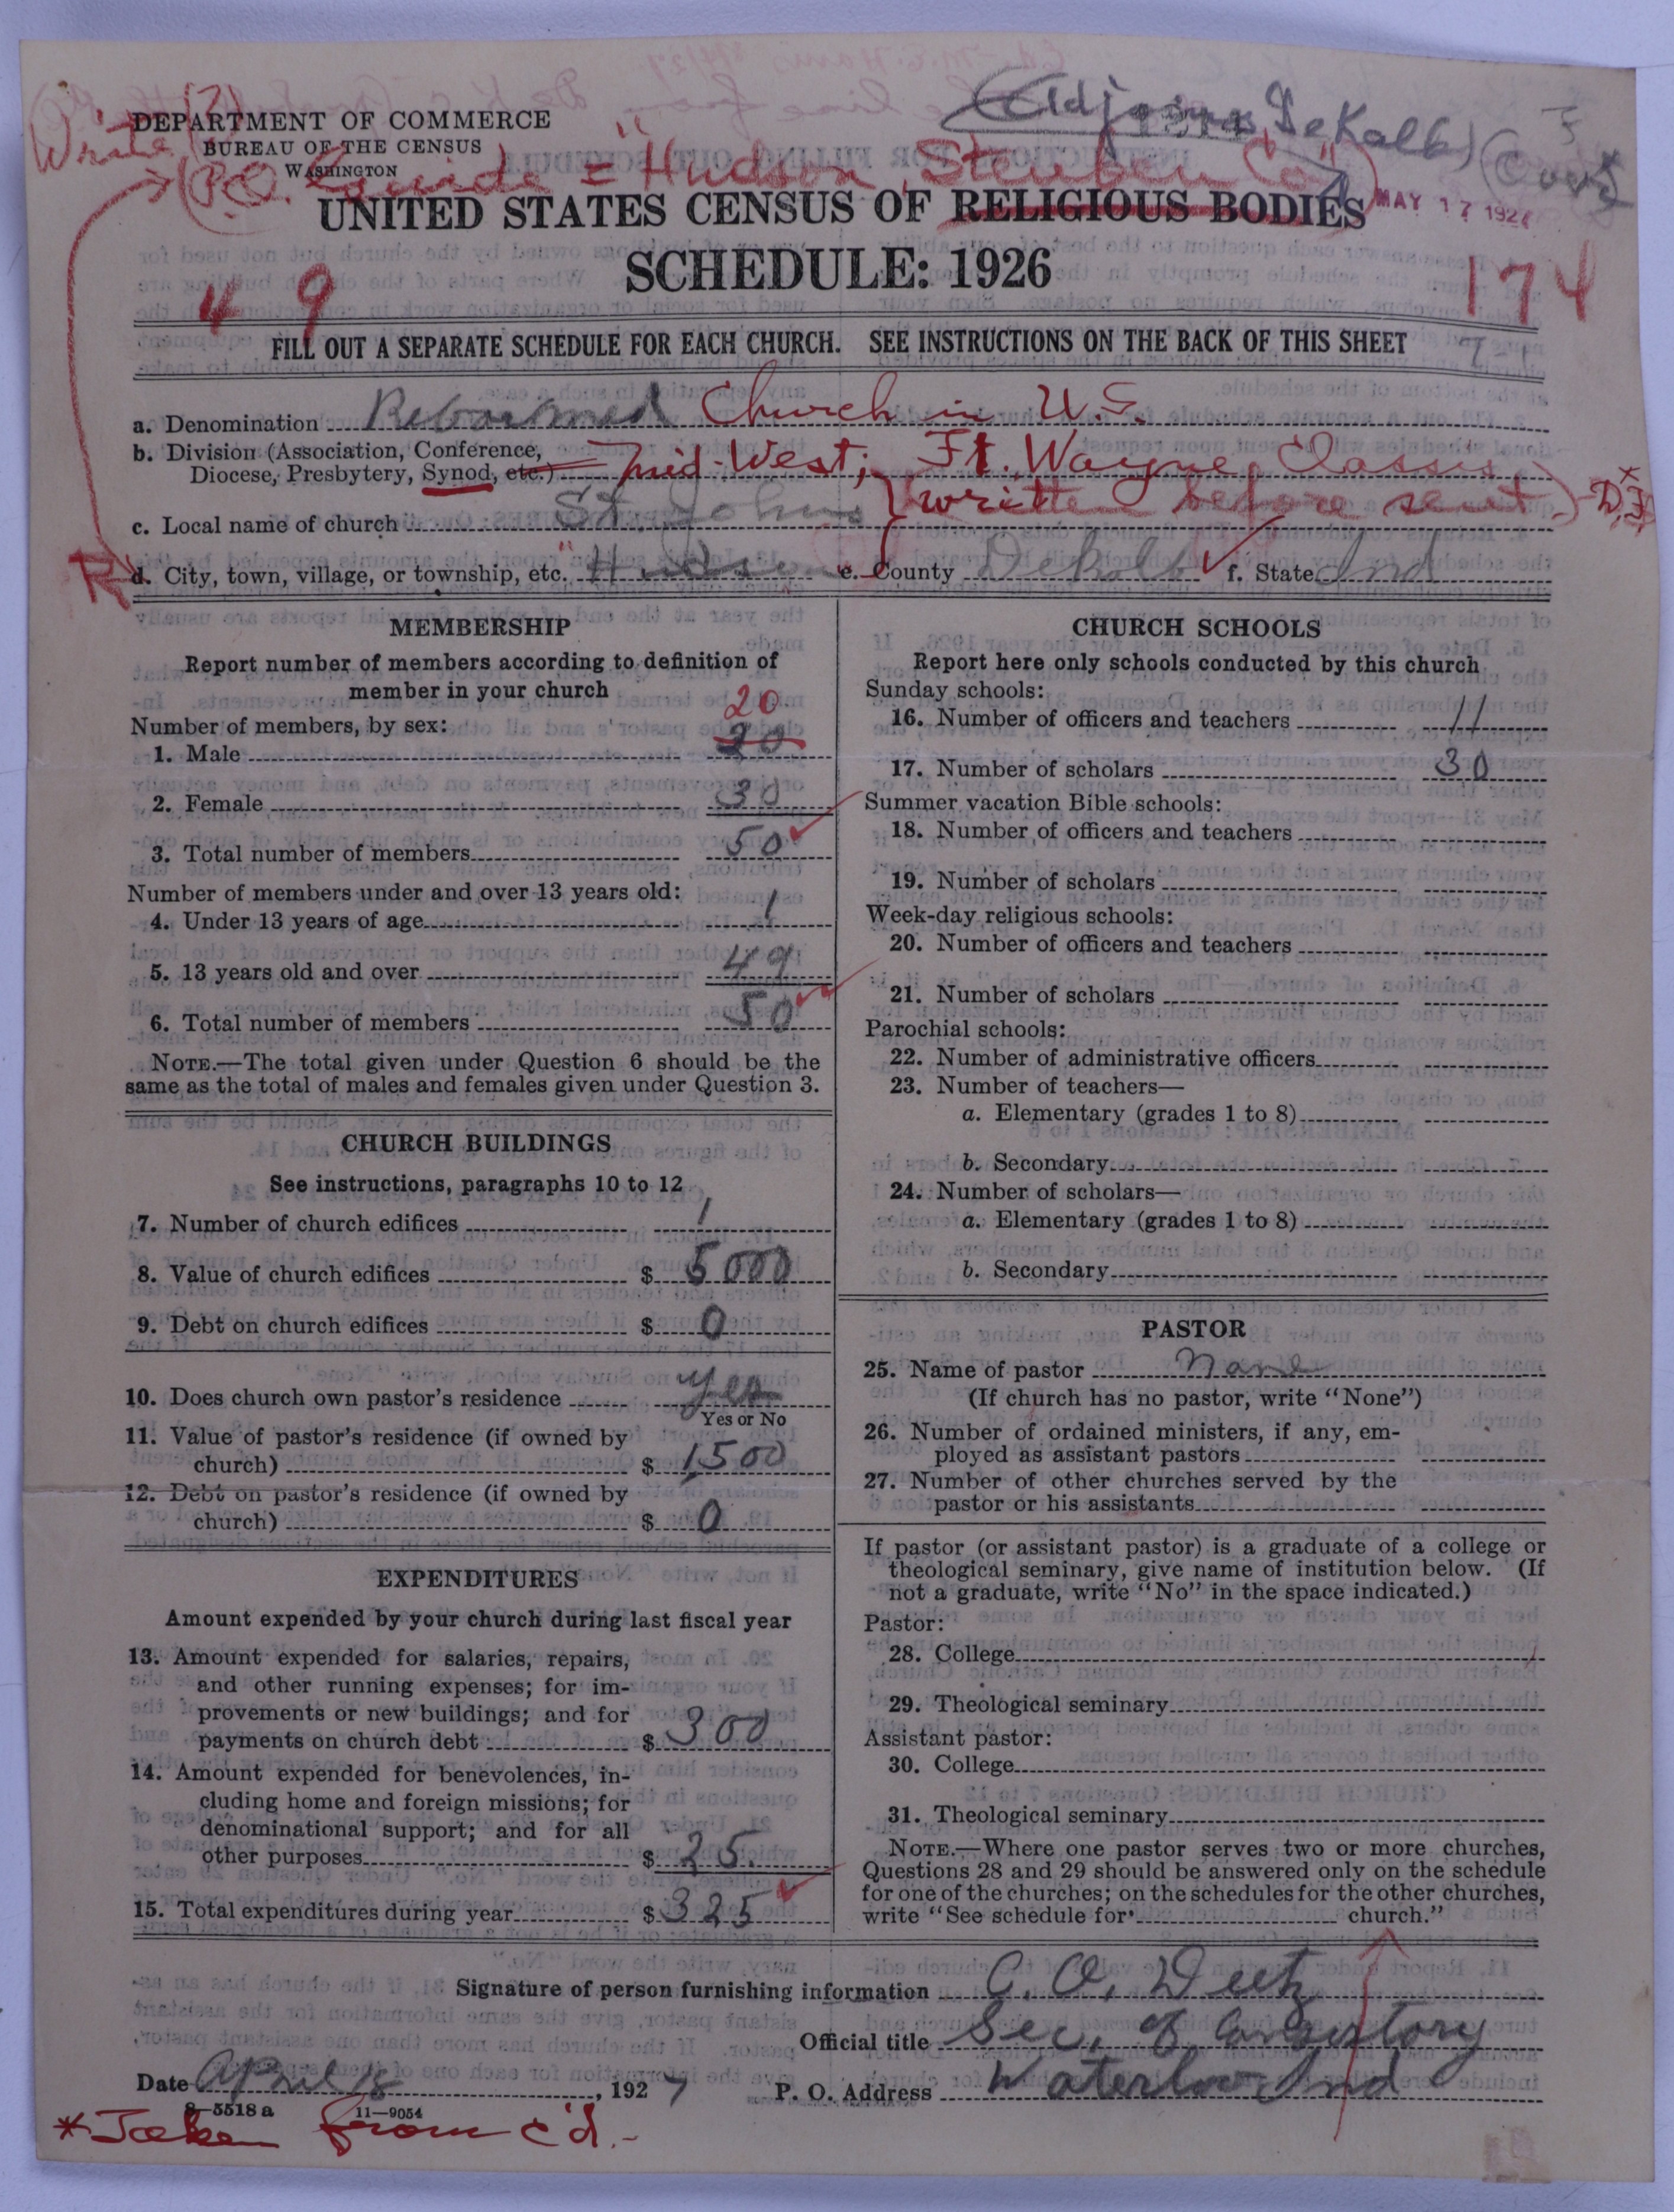 Write (?)
(Adjoins DeKalb) (Over)
DEPARTMENT OF COMMERCE
BUREAU OF THE CENSUS
WASHINGTON
(P.O. Guide = "Hudson, Steuben Co")
MAY 17 1927
UNITED STATES CENSUS OF RELIGIOUS BODIES
SCHEDULE: 1926
9
174
FILL OUT A SEPARATE SCHEDULE FOR EACH CHURCH. SEE INSTRUCTIONS ON THE BACK OF THIS SHEET
7-1
a. Denomination Reformed Church in U.S.
b. Division (Association, Conference,
Diocese, Presbytery, Synod, etc.) Mid-West; Ft. Wayne Classis
c. Local name of church St Johns (written before sent.)
d. City, town, village, or township, etc. "Hudson e. County DeKalb f. State Ind
MEMBERSHIP
Report number of members according to definition of
member in your church
20
Number of members, by sex:
1. Male 20
2. Female 30
3. Total number of members 50
Number of members under and over 13 years old:
4. Under 13 years of age 1
5. 13 years old and over 49
6. Total number of members 50
NOTE.—The total given under Question 6 should be the
same as the total of males and females given under Question 3.
CHURCH BUILDINGS
See instructions, paragraphs 10 to 12
7. Number of church edifices 1
8. Value of church edifices $ 5000
9. Debt on church edifices $ 0
10. Does church own pastor's residence Yes
Yes or No
11. Value of pastor's residence (if owned by
church) $ 1500
12. Debt on pastor's residence (if owned by
church) $ 0
EXPENDITURES
Amount expended by your church during last fiscal year
13. Amount expended for salaries, repairs,
and other running expenses; for im-
provements or new buildings; and for
payments on church debt $ 300
14. Amount expended for benevolences, in-
cluding home and foreign missions; for
denominational support; and for all
other purposes $ 25.
15. Total expenditures during year $ 325
CHURCH SCHOOLS
Report here only schools conducted by this church
Sunday schools:
16. Number of officers and teachers 11
17. Number of scholars 30
Summer vacation Bible schools:
18. Number of officers and teachers
19. Number of scholars
Week-day religious schools:
20. Number of officers and teachers
21. Number of scholars
Parochial schools:
22. Number of administrative officers
23. Number of teachers—
a. Elementary (grades 1 to 8)
b. Secondary
24. Number of scholars—
a. Elementary (grades 1 to 8)
b. Secondary
PASTOR
25. Name of pastor None
(If church has no pastor, write "None")
26. Number of ordained ministers, if any, em-
ployed as assistant pastors
27. Number of other churches served by the
pastor or his assistants
If pastor (or assistant pastor) is a graduate of a college or
theological seminary, give name of institution below. (If
not a graduate, write "No" in the space indicated.)
Pastor:
28. College
29. Theological seminary
Assistant pastor:
30. College
31. Theological seminary
NOTE.—Where one pastor serves two or more churches,
Questions 28 and 29 should be answered only on the schedule
for one of the churches; on the schedules for the other churches,
write "See schedule for church."
Signature of person furnishing information C. O. Deetz
Official title Sec. of Consistory
Date April 18, 1927 P. O. Address Waterloo Ind
8—5518 a 11—9054
*Taken from c'd.-